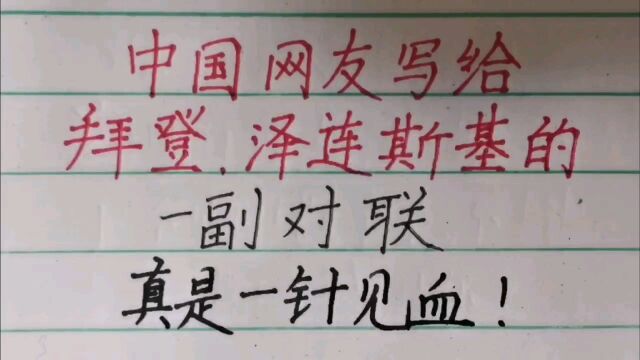 中国网友写给
拜登.泽连斯基的
一副对联
真是一针见血!